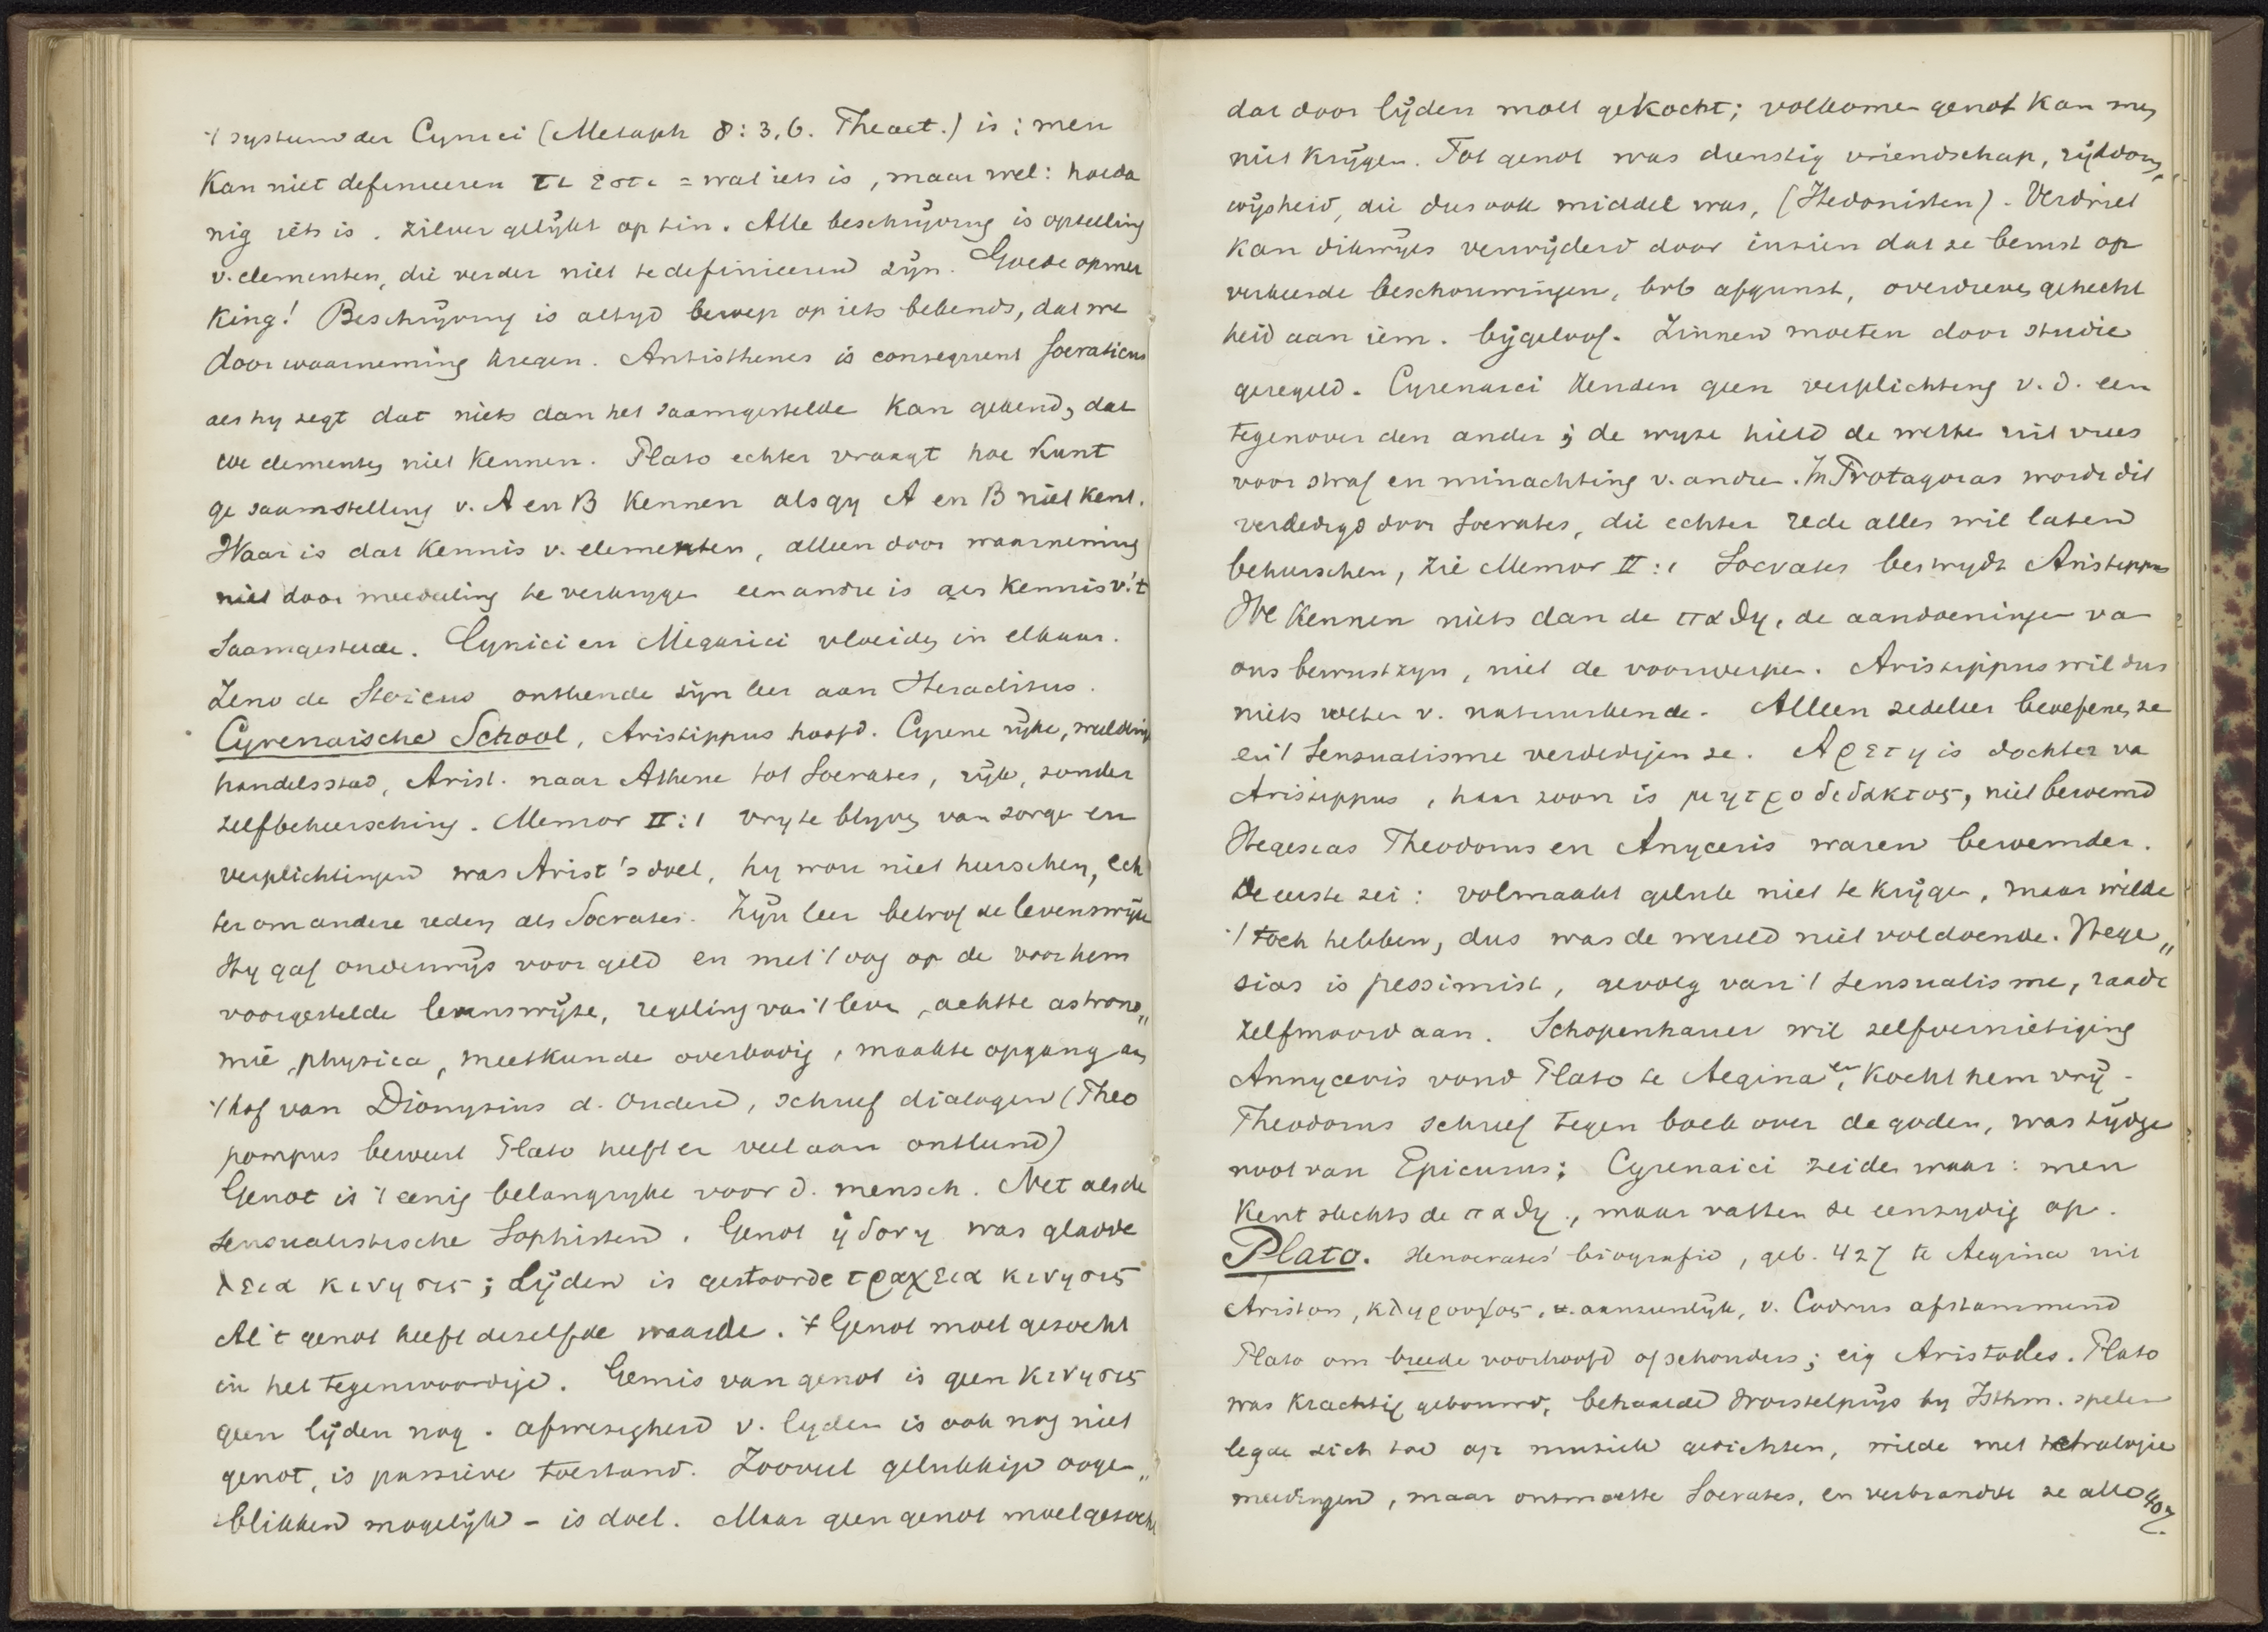 't systeem der Cynici (Metaph 8:3,6. Theaet.) is: men
kan niet definieeren τι εστι = wat iets is, maar wel: hoeda
nig iets is. zilver gelijkt op tin. Alle beschrijving is optelling
v. elementen, die verder niet te definieeren zijn. Goede opmer
king! Beschrijving is altyd beroep op iets bekends, dat we
door waarneming kregen. Antisthenes is consequent Socraticus
als hy zegt dat niets dan het saamgestelde kan gekend, dat
we elementen niet kennen. Plato echter vraagt hoe kunt
ge saamstelling v. A en B kennen als gy A en B niet kent.
Waar is dat kennis v. elementen, alleen door waarneming
niet door mededeeling te verkrygen een andre is als kennis v. 't
Saamgestelde. Cynici en Megarici vloeiden in elkaar.
Zeno de Stoicus ontleende zijn leer aan Heraclitus.
Cyrenaische School, Aristippus hoofd. Cyrene rijke, weelderige
handelsstad, Arist. naar Athene tot Socrates, rijk, zonder
zelfbeheersching. Memor II:1 vry te blyven van zorgen en
verplichtingen was Arist's doel, hy wou niet heerschen, ech
ter om andere reden als Socrates. Zijn leer betrof de levenswijze
Hy gaf onderwijs voor geld en met 't oog op de voor hem
voorgestelde levenswijze, regeling van 't leven, achtte astrono„
mie, physica, meetkunde overbodig, maakte opgang aan
't hof van Dionysius d. Oudere, schreef dialogen (Theo
pompus beweert Plato heeft er veel aan ontleend)
Genot is 't eenig belangryke voor d. mensch. Net als de
sensualistische Sophisten. Genot ηδονη was gladde
λεια κινησις; Lijden is gestoorde τραχεια κινησις
Al 't genot heeft dezelfde waarde. Genot moet gezocht
in het tegenwoordige. Gemis van genot is geen κινησις
geen lijden nog. afwezigheid v. lyden is ook nog niet
genot, is passieve toestand. Zooveel gelukkige ooge„
blikken mogelijk – is doel. Maar geen genot moet gezocht
dat door lijden moet gekocht; volkomen genot kan men
niet krijgen. Tot genot was dienstig vriendschap, rijkdom,
wijsheid, die dus ook middel was, (Hedonisten). Verdriet
kan dikwijls verwijderd door inzien dat ze berust op
verkeerde beschouwingen, bvb afgunst, overdreven gehecht
heid aan iem. bijgeloof. Zinnen moeten door studie
geregeld. Cyrenaici kenden geen verplichting v. d. een
tegenover den ander; de wyze hield de wetten uit vrees
voor straf en minachting v. andre. In Protagoras wordt dit
verdedigd door Socrates, die echter rede alles wil laten
beheerschen, zie Memor II:1 Socrates bestrydt Aristippus
We kennen niets dan de παθη, de aandoeningen van
ons bewustzyn, niet de voorwerpen. Aristippus wil dus
niets weten v. natuurkunde. Alleen zedeleer beoefenen ze
en 't Sensualisme verdedigen ze. Αρετη is dochter van
Aristippus, haar zoon is μητροδιδακτος, niet beroemd
Hegesias Theodorus en Anyceris waren beroemder.
De eerste zei: volmaakt geluk niet te krijgen, maar wilde
't toch hebben, dus was de wereld niet voldoende. Hege„
sias is pessimist, gevolg van 't sensualisme, raadt
zelfmoord aan. Schopenhauer wil zelfvernietiging
Annyceris vond Plato te Aegina en kocht hem vrij.
Theodorus schreef tegen boek over de goden, was tijdge
noot van Epicurus; Cyrenaici zeiden waar: men
kent slechts de παθη, maar vatten ze eenzydig op.
Plato. Xenocrates' biografie, geb. 427 te Aegina uit
Ariston, κληρουχος, aanzienlijk, v. Codrus afstammend
Plato om breede voorhoofd of schouders; eig Aristocles. Plato
was krachtig gebouwd, behaalde worstelprijs by Isthm. spelen
legde zich toe op muziek gedichten, wilde met tetralogie
meedingen, maar ontmoette Socrates, en verbrandde ze alle 407.